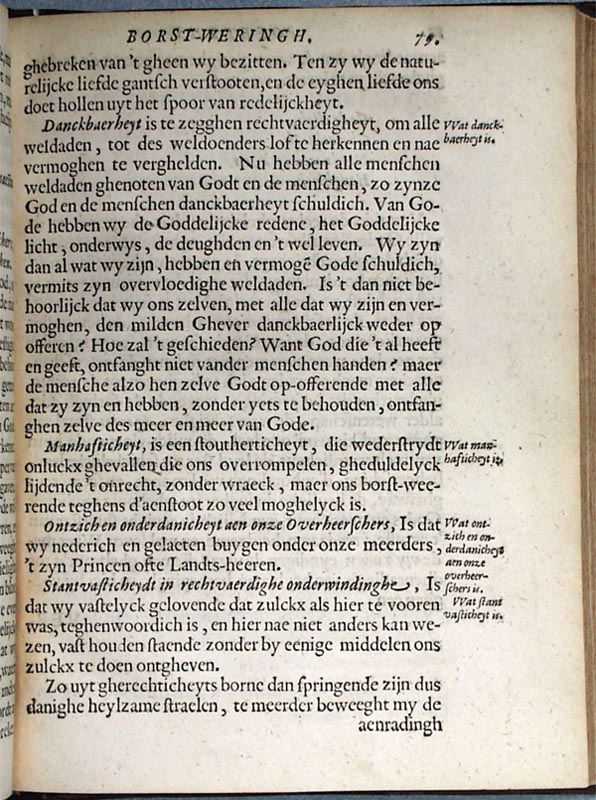 BORST-WERINGH. 79.
ghebreken van 't gheen wy bezitten. Ten zy wy de natu-
relijcke liefde gantsch verstooten, en de eyghen liefde ons
doet hollen uyt het spoor van redelijckheyt.
Danckbaerheyt is te zegghen rechtvaerdigheyt, om alle
weldaden, tot des weldoenders lof te herkennen en nae
vermoghen te verghelden. Nu hebben alle menschen
weldaden ghenoten van Godt en de menschen, zo zynze
God en de menschen danckbaerheyt schuldich. Van Go-
de hebben wy de Goddelijcke redene, het Goddelijcke
licht, onderwys, de deughden en 't wel leven. Wy zyn
dan al wat wy zijn, hebben en vermogē Gode schuldich,
vermits zyn overvloedighe weldaden. Is 't dan niet be-
hoorlijck dat wy ons zelven, met alle dat wy zijn en ver-
moghen, den milden Ghever danckbaerlijck weder op
offeren? Hoe zal 't geschieden? Want God die 't al heeft
en geeft, ontfanght niet vander menschen handen? maer
de mensche alzo hen zelve Godt op-offerende met alle
dat zy zyn en hebben, zonder yets te behouden, ontfan-
ghen zelve des meer en meer van Gode.
Manhasticheyt, is een stoutherticheyt, die wederstrydt
onluckx ghevallen die ons overrompelen, gheduldelyck
lijdende 't onrecht, zonder wraeck, maer ons borst-wee-
rende teghens d'aenstoot zo veel moghelyck is.
Ontzich en onderdanicheyt aen onze Overheerschers, Is dat
wy nederich en gelaeten buygen onder onze meerders,
't zyn Princen ofte Landts-heeren.
Stantvasticheydt in rechtvaerdighe onderwindinghe, Is
dat wy vastelyck gelovende dat zulckx als hier te vooren
was, teghenwoordich is, en hier nae niet anders kan we-
zen, vast houden staende zonder by eenige middelen ons
zulckx te doen ontgheven.
Zo uyt gherechticheyts borne dan springende zijn dus
danighe heylzame straelen, te meerder beweeght my de
aenradingh
Wat danck-
baerheyt is.
Wat man-
hasticheyt is.
Wat ont-
zich en on-
derdanicheyt
aen onze
overheer-
schers is.
Wat stant
vasticheyt is.